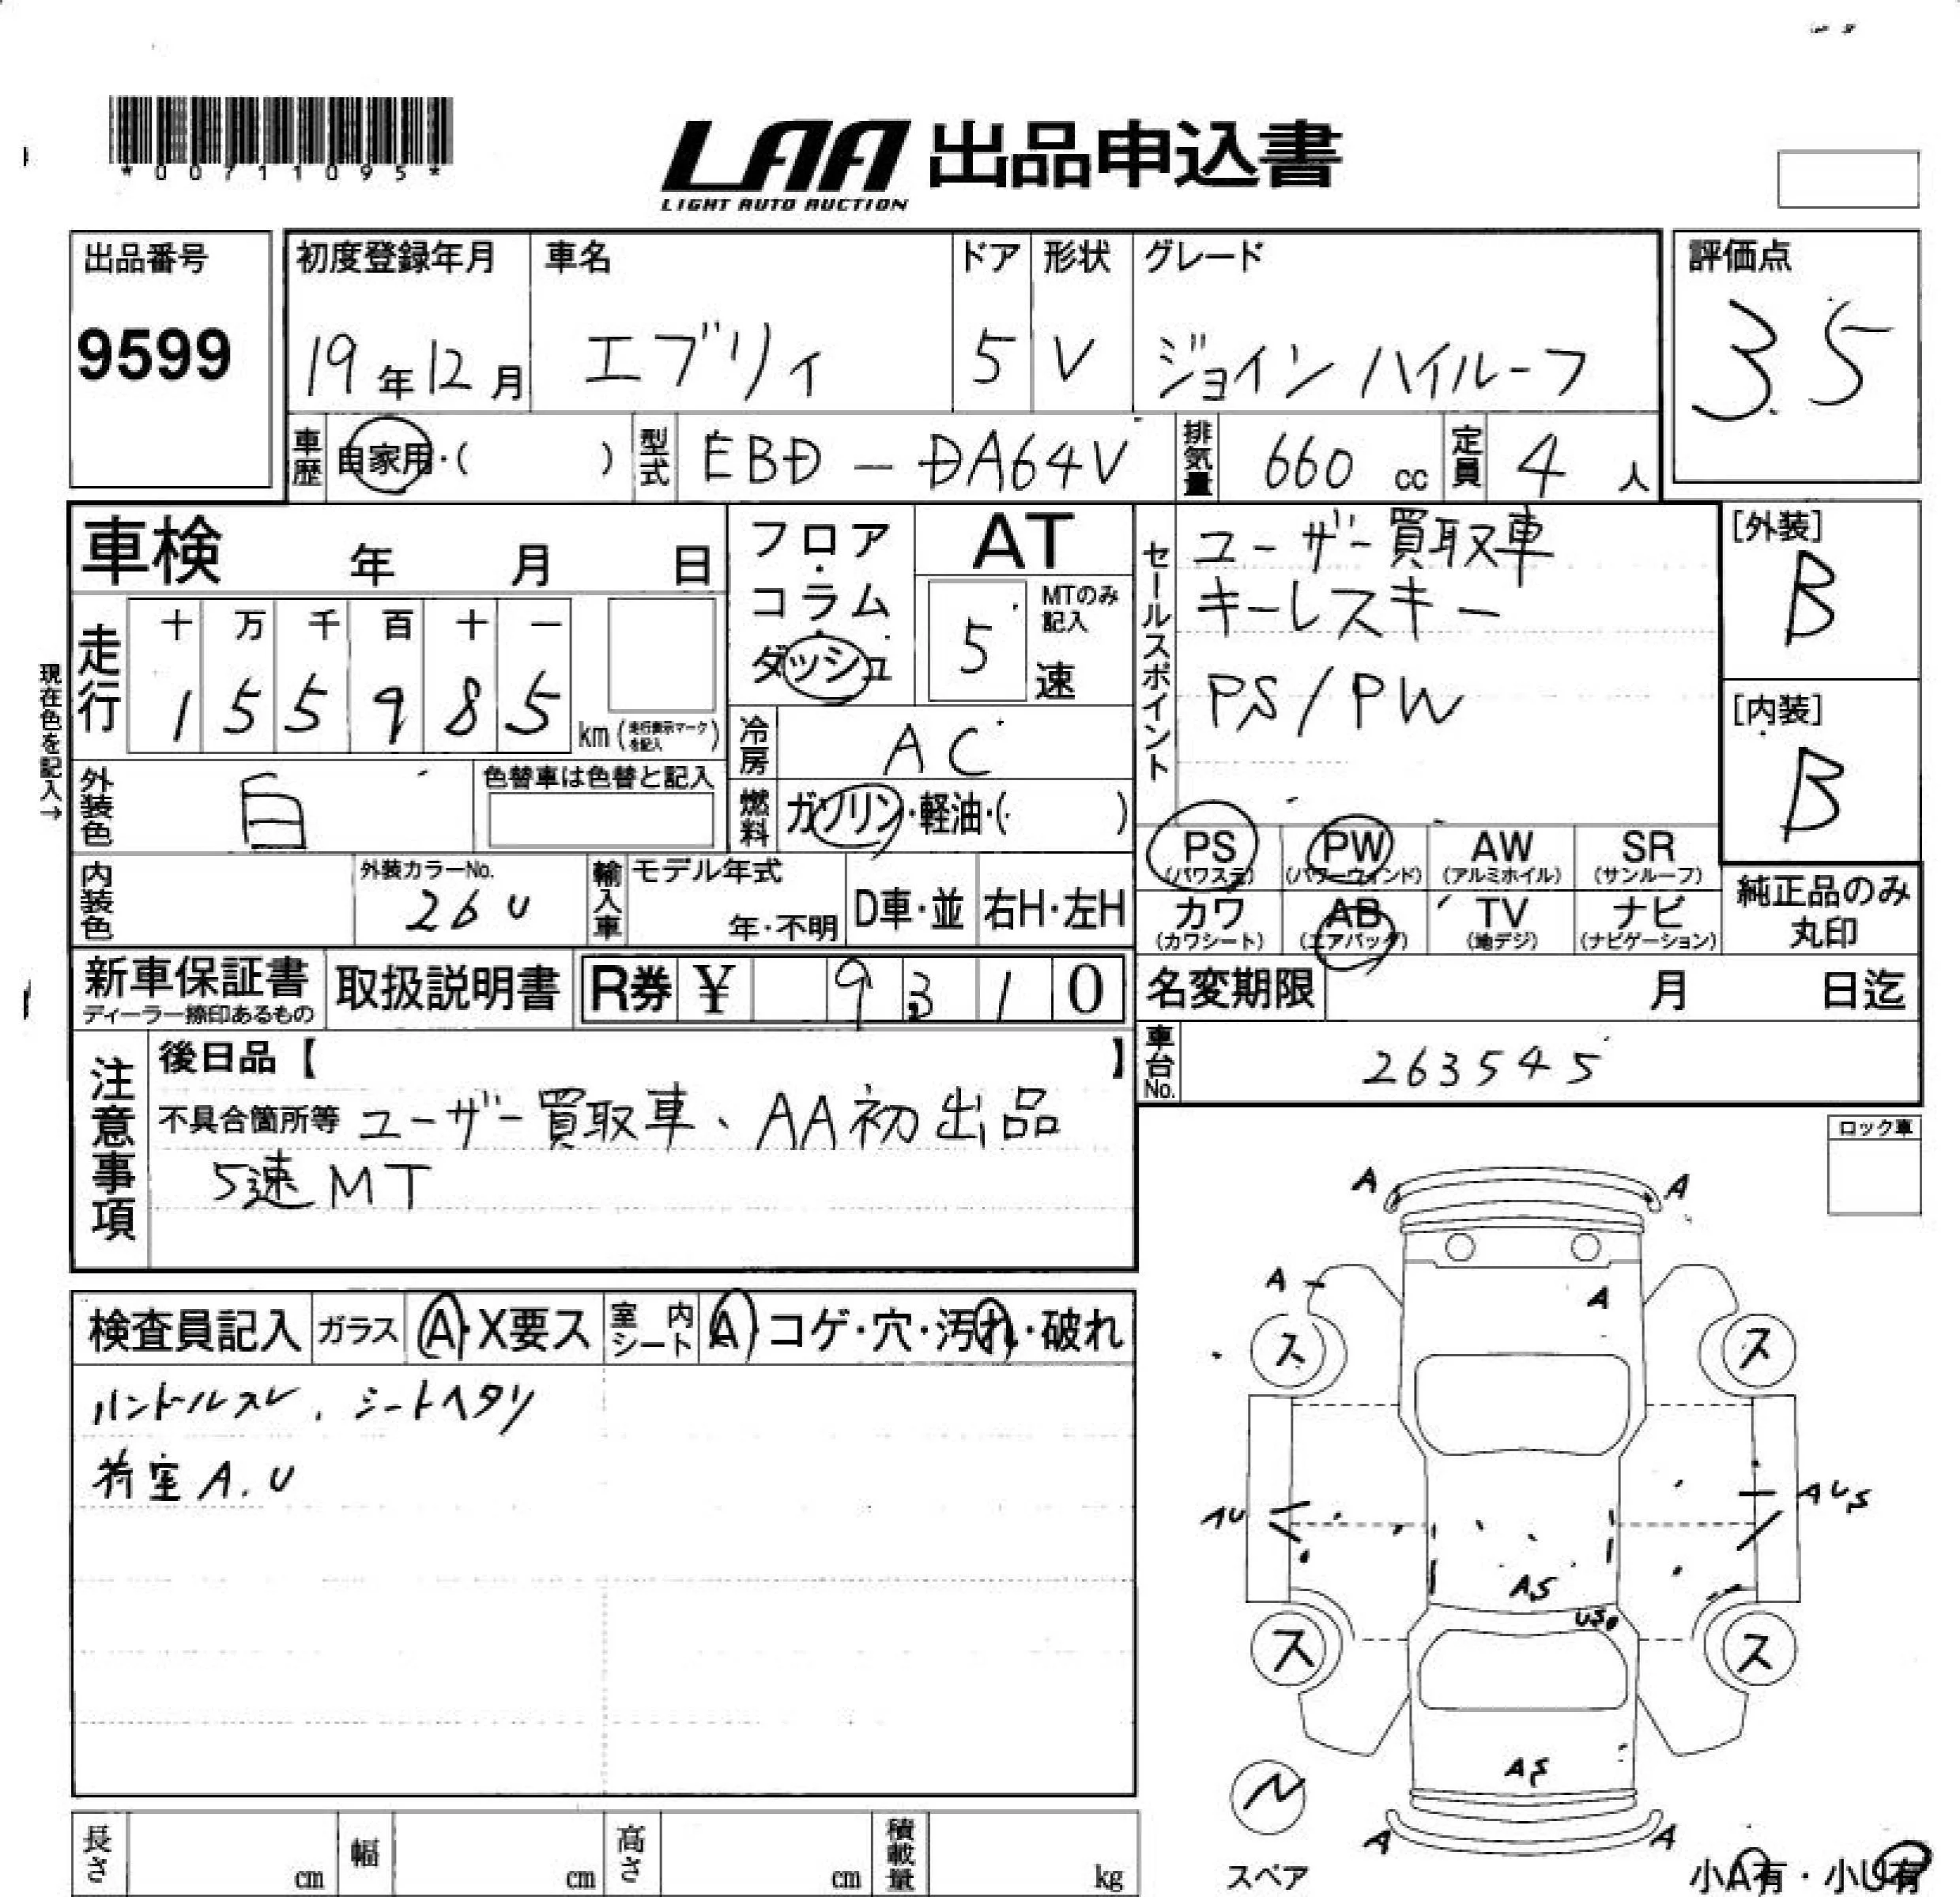 *00711095*
LAA 出品申込書
LIGHT AUTO AUCTION
出品番号
9599
初度登録年月 車名 ドア 形状 グレード
19年12月 エブリィ 5 V ジョイン ハイルーフ
評価点
3.5
車歴 自家用・( ) 型式 EBD-DA64V 排気量 660 cc 定員 4 人
車検 年 月 日
現在色を記入→
走行 十 万 千 百 十 一
1 5 5 9 8 5 km (走行表示マークを記入)
フロア・コラム・ダッシュ
AT
5 MTのみ記入 速
冷房 AC
燃料 ガソリン・軽油・( )
外装色 白 色替車は色替と記入
内装色 外装カラーNo. 26U
輸入車 モデル年式 年・不明 D車・並 右H・左H
セールスポイント
ユーザー買取車
キーレスキー
PS/PW
[外装]
B
[内装]
B
PS (パワステ) PW (パワーウィンド) AW (アルミホイル) SR (サンルーフ)
カワ (カワシート) AB (エアバッグ) TV (地デジ) ナビ (ナビゲーション)
純正品のみ丸印
新車保証書 ディーラー捺印あるもの 取扱説明書 R券 ¥ 9310
名変期限 月 日迄
車台No. 263545
注意事項
後日品【 】
不具合箇所等 ユーザー買取車、AA初出品
5速MT
ロック車
検査員記入 ガラス A・X要ス 室内シート A・コゲ・穴・汚れ・破れ
ハンドルスレ、シートヘタリ
荷室A.U
A A
A A
ス ス
AU AUS
AS
US
ス ス
AS
A A
スペア
小A有・小U有
長さ cm 幅 cm 高さ cm 積載量 kg